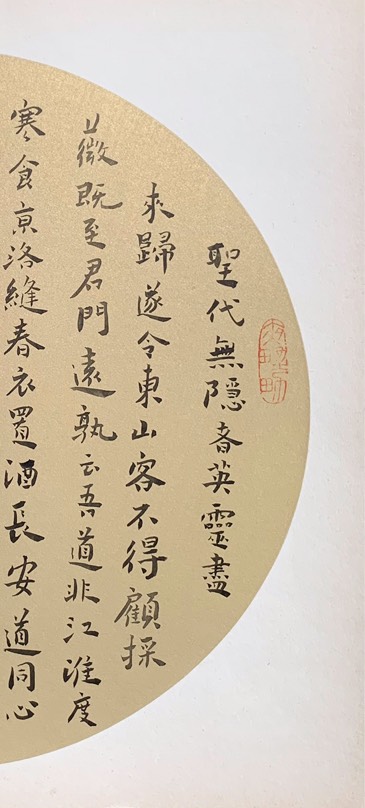 聖代無隱者英靈盡
来歸遂令東山客不得顧採
薇既至君門遠孰云吾道非江淮度
寒食京洛縫春衣置酒長安道同心